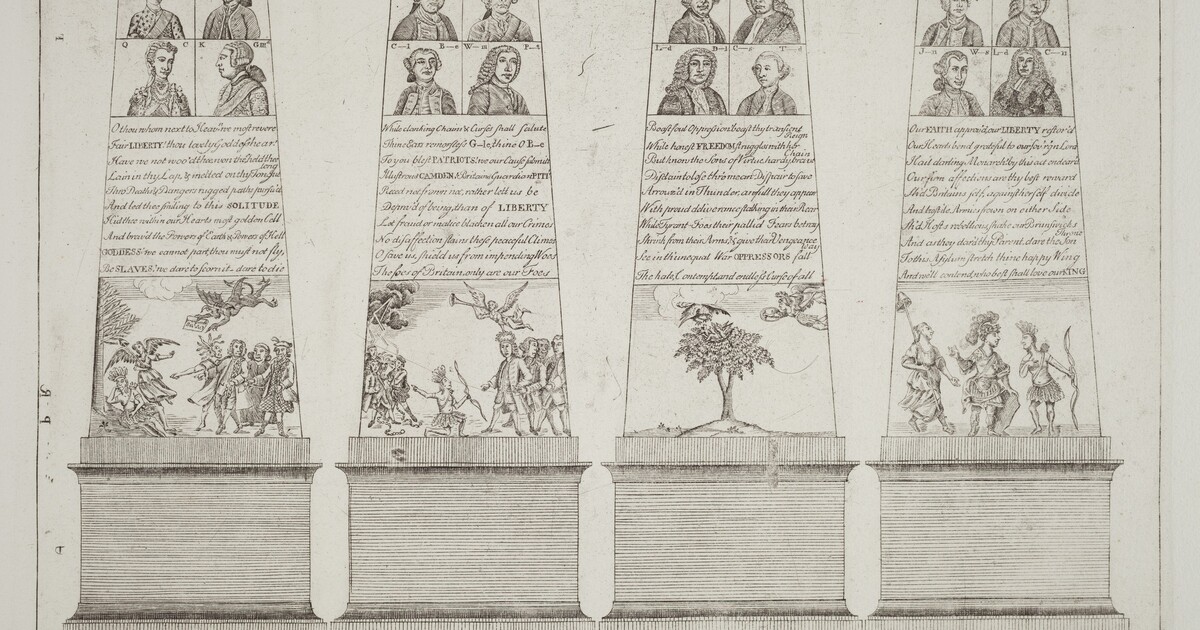 Q C K G
C—l B—e W—m P—t
L—d D—l C—s T—d
J—n W—s L—d C—n
O thou whom next to Heav'n we most revere
Fair LIBERTY! thou lovely Goddess hear!
Have we not woo'd thee, won thee, held thee long
Lain in thy Lap, & melted on thy Tongue
Thro Deaths & Dangers rugged paths pursu'd
And led thee smiling to this SOLITUDE
Hid thee within our Hearts most golden Cell
And brav'd the Powers of Earth & Powers of Hell
GODDESS! we cannot part, thou must not fly,
Be SLAVES! we dare to scorn it- dare to die
While clanking Chains & Curses shall salute
Thine Ears remorseless G—le, thine O B—e
To you blest PATRIOTS! we our Cause submit
Illustrious CAMDEN, & Britains Guardian PITT
Recede not, frown not, rather let us be
Depriv'd of being, than of LIBERTY
Let fraud or malice blacken all our Crimes
No disaffection stains these peaceful Climes
O save us, shield us from impending Woes
The foes of Britain, only are our Foes
Boast foul Oppression, boast thy transient Reign
While honest FREEDOM struggles with her Chain
But know the Sons of Virtue, hardy, brave
Disdain to lose thro' mean Dispair to save
Arrow'd in Thunder, awfull they appear
With proud deliverance stalking in their Rear
While Tyrant-Foes their pallid Fears betray
Shrink from their Arms, & give their Vengeance way
See in th' unequal War OPPRESSORS fall
The hate, Contempt, and endless Curse of all
Our FAITH approv'd, our LIBERTY restor'd
Our Hearts bend grateful to our sov'reign Lord
Hail darling Monarch! by this act endear'd
Our firm affections are thy best reward
Sh'd Britains self, against herself divide
And hostile Armies frown on either Side
Sh'd Hosts rebellious, shake our Brunswick's Throne
And as they dar'd thy Parent, dare the Son
To this Asylum stretch thine happy Wing
And we'll contend, who best shall love our KING